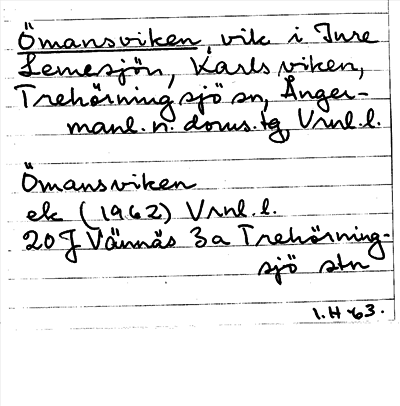 Ömansviken, vik i Inre
Lemesjön, Karlsviken,
Trehörningsjö sn, Ånger-
manl. n. doms.tg, Vrnl.l.
Ömansviken
ek (1962) Vrnl.l.
20J Vännäs 3a Trehörning-
sjö stn
I.H 63.